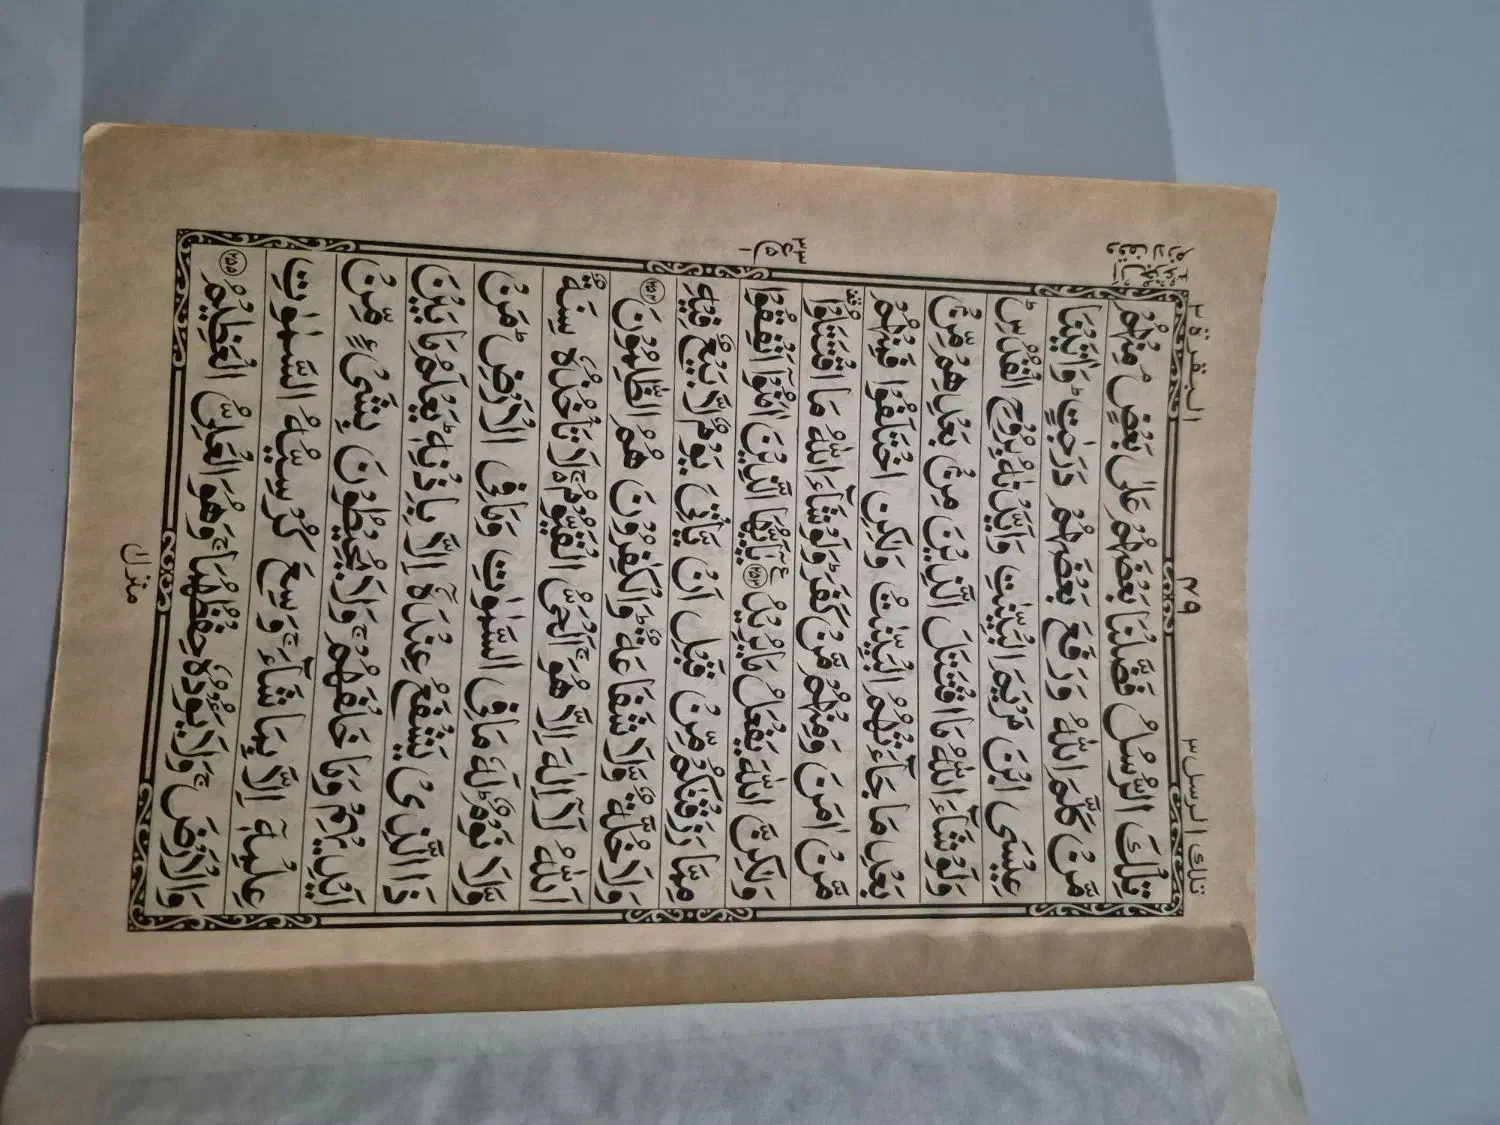 تلك الرسل ٣
٣٩
البقرة ٢
تِلْكَ الرُّسُلُ فَضَّلْنَا بَعْضَهُمْ عَلٰى بَعْضٍ ۘ مِنْهُمْ
مَّنْ كَلَّمَ اللّٰهُ وَرَفَعَ بَعْضَهُمْ دَرَجٰتٍ ؕ وَاٰتَيْنَا
عِيْسَى ابْنَ مَرْيَمَ الْبَيِّنٰتِ وَاَيَّدْنٰهُ بِرُوْحِ الْقُدُسِ ؕ
وَلَوْ شَآءَ اللّٰهُ مَا اقْتَتَلَ الَّذِيْنَ مِنْۢ بَعْدِهِمْ مِّنْۢ
بَعْدِ مَا جَآءَتْهُمُ الْبَيِّنٰتُ وَلٰكِنِ اخْتَلَفُوْا فَمِنْهُمْ
مَّنْ اٰمَنَ وَمِنْهُمْ مَّنْ كَفَرَ ؕ وَلَوْ شَآءَ اللّٰهُ مَا اقْتَتَلُوْا
وَلٰكِنَّ اللّٰهَ يَفْعَلُ مَا يُرِيْدُ ﴿۲۵۳﴾ يٰۤاَيُّهَا الَّذِيْنَ اٰمَنُوْۤا اَنْفِقُوْا
مِمَّا رَزَقْنٰكُمْ مِّنْ قَبْلِ اَنْ يَّاْتِيَ يَوْمٌ لَّا بَيْعٌ فِيْهِ
وَلَا خُلَّةٌ وَّلَا شَفَاعَةٌ ؕ وَالْكٰفِرُوْنَ هُمُ الظّٰلِمُوْنَ ﴿۲۵۴﴾
اَللّٰهُ لَآ اِلٰهَ اِلَّا هُوَ ۚ اَلْحَيُّ الْقَيُّوْمُ ۚ لَا تَاْخُذُهٗ سِنَةٌ
وَّلَا نَوْمٌ ؕ لَهٗ مَا فِي السَّمٰوٰتِ وَمَا فِي الْاَرْضِ ؕ مَنْ
ذَا الَّذِيْ يَشْفَعُ عِنْدَهٗٓ اِلَّا بِاِذْنِهٖ ؕ يَعْلَمُ مَا بَيْنَ
اَيْدِيْهِمْ وَمَا خَلْفَهُمْ ۚ وَلَا يُحِيْطُوْنَ بِشَيْءٍ مِّنْ
عِلْمِهٖٓ اِلَّا بِمَا شَآءَ ۚ وَسِعَ كُرْسِيُّهُ السَّمٰوٰتِ
وَالْاَرْضَ ۚ وَلَا يَـُٔوْدُهٗ حِفْظُهُمَا ۚ وَهُوَ الْعَلِيُّ الْعَظِيْمُ ﴿۲۵۵﴾
منزل